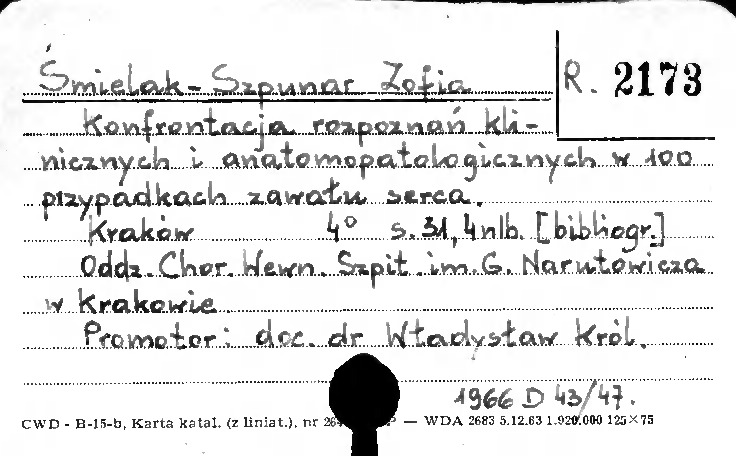 Śmielak-Szpunar Zofia
R. 2173
Konfrontacja rozpoznań kli-
nicznych i anatomopatologicznych w 100
przypadkach zawału serca.
Kraków 4° s. 31, 4 nlb. [bibliogr.]
Oddz. Chor. Wewn. Szpit. im. G. Narutowicza
w Krakowie
Promotor: doc. dr Władysław Król.
1966 D 43/47.
CWD - B-15-b, Karta katal. (z liniat.), nr — WDA 2683 5.12.63 1.920.000 125×75